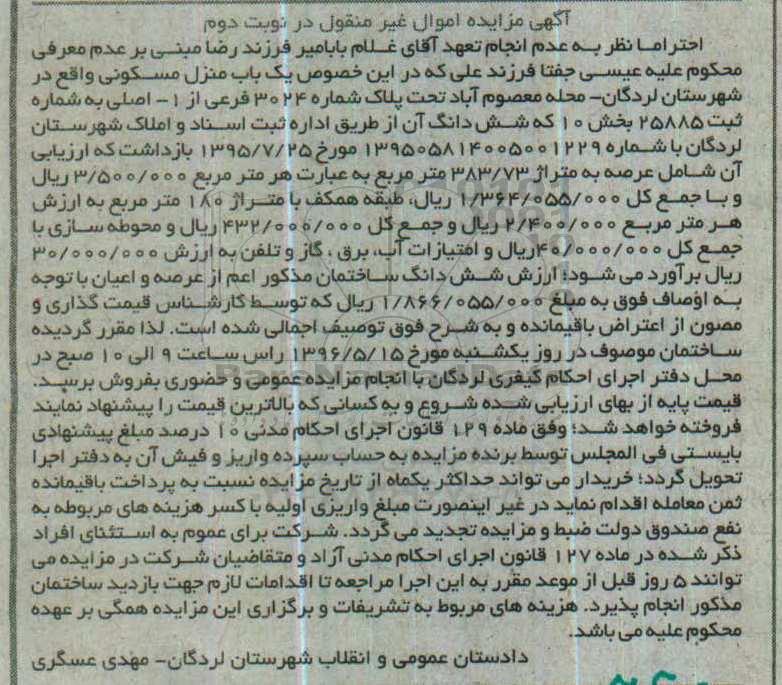 آگهی مزایده اموال غیر منقول در نوبت دوم
احتراما نظر به عدم انجام تعهد آقای غلام بابامیر فرزند رضا مبنی بر عدم معرفی
محکوم علیه عیسی جفتا فرزند علی که در این خصوص یک باب منزل مسکونی واقع در
شهرستان لردگان- محله معصوم آباد تحت پلاک شماره ۳۰۲۴ فرعی از ۱- اصلی به شماره
ثبت ۲۵۸۸۵ بخش ۱۰ که شش دانگ آن از طریق اداره ثبت اسناد و املاک شهرستان
لردگان با شماره ۱۳۹۵۰۵۸۱۴۰۰۵۰۰۱۲۲۹ مورخ ۱۳۹۵/۷/۲۵ بازداشت که ارزیابی
آن شامل عرصه به متراژ ۳۸۳/۷۳ متر مربع به عبارت هر متر مربع ۳/۵۰۰/۰۰۰ ریال
و با جمع کل ۱/۳۶۴/۰۵۵/۰۰۰ ریال، طبقه همکف با متراژ ۱۸۰ متر مربع به ارزش
هر متر مربع ۲/۴۰۰/۰۰۰ ریال و جمع کل ۴۳۲/۰۰۰/۰۰۰ ریال و محوطه سازی با
جمع کل ۴۰/۰۰۰/۰۰۰ریال و امتیازات آب، برق ، گاز و تلفن به ارزش ۳۰/۰۰۰/۰۰۰
ریال برآورد می شود؛ ارزش شش دانگ ساختمان مذکور اعم از عرصه و اعیان با توجه
به اوصاف فوق به مبلغ ۱/۸۶۶/۰۵۵/۰۰۰ ریال که توسط کارشناس قیمت گذاری و
مصون از اعتراض باقیمانده و به شرح فوق توصیف اجمالی شده است. لذا مقرر گردیده
ساختمان موصوف در روز یکشنبه مورخ ۱۳۹۶/۵/۱۵ راس ساعت ۹ الی ۱۰ صبح در
محل دفتر اجرای احکام کیفری لردگان با انجام مزایده عمومی و حضوری بفروش برسد.
قیمت پایه از بهای ارزیابی شده شروع و به کسانی که بالاترین قیمت را پیشنهاد نمایند
فروخته خواهد شد؛ وفق ماده ۱۲۹ قانون اجرای احکام مدنی ۱۰ درصد مبلغ پیشنهادی
بایستی فی المجلس توسط برنده مزایده به حساب سپرده واریز و فیش آن به دفتر اجرا
تحویل گردد؛ خریدار می تواند حداکثر یکماه از تاریخ مزایده نسبت به پرداخت باقیمانده
ثمن معامله اقدام نماید در غیر اینصورت مبلغ واریزی اولیه با کسر هزینه های مربوطه به
نفع صندوق دولت ضبط و مزایده تجدید می گردد. شرکت برای عموم به استثنای افراد
ذکر شده در ماده ۱۲۷ قانون اجرای احکام مدنی آزاد و متقاضیان شرکت در مزایده می
توانند ۵ روز قبل از موعد مقرر به این اجرا مراجعه تا اقدامات لازم جهت بازدید ساختمان
مذکور انجام پذیرد. هزینه های مربوط به تشریفات و برگزاری این مزایده همگی بر عهده
محکوم علیه می باشد.
دادستان عمومی و انقلاب شهرستان لردگان- مهدی عسگری